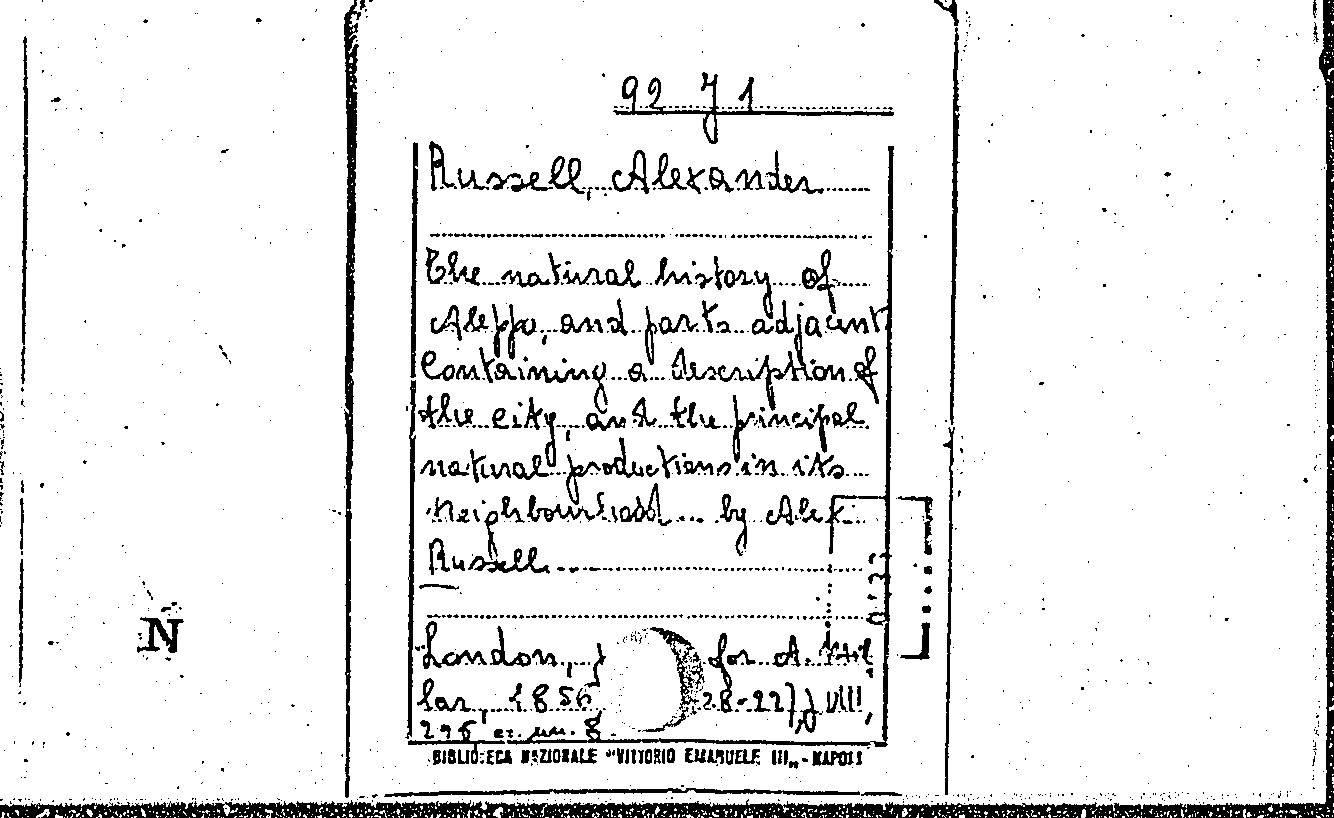 92 J 1
Russell, Alexander
The natural history of
Aleppo, and parts adjacent
Containing a description of
the city, and the principal
natural productions in its
Neighbourhood... by Alex
Russell...
London, for A. Mil
lar, 1856 28-22], VIII,
N
BIBLIOTECA NAZIONALE "VITTORIO EMANUELE III„ - NAPOLI